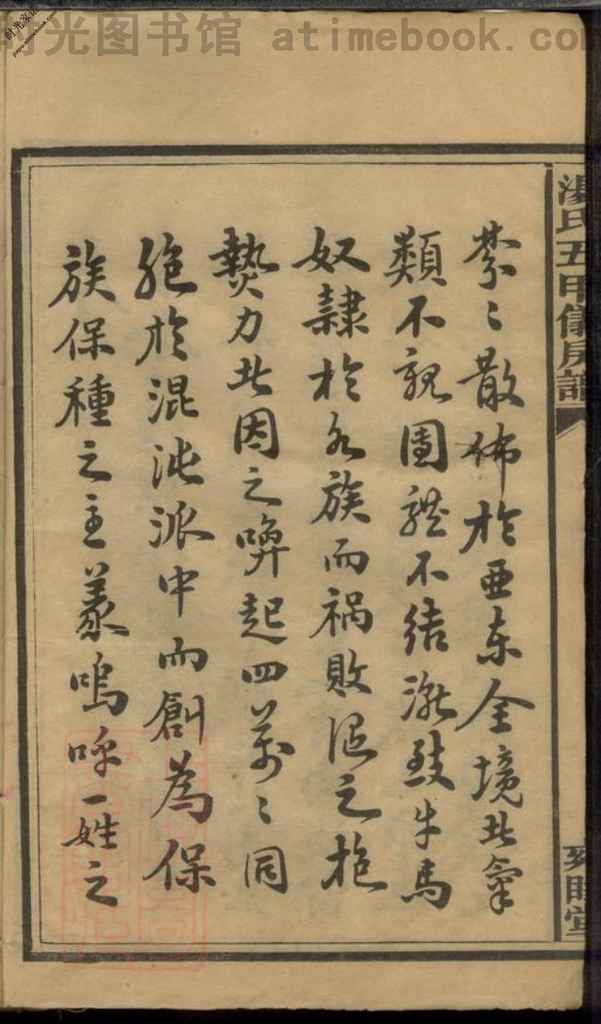 时光图书馆 atimebook.com
湯氏五甲儀房譜
棼〻散佈於亜东全境其
類不親團體不結漸致牛馬
奴隸於各族而禍敗随之抱
熱力者因之喚起四萬〻同
胞於混沌派中而創為保
族保種之主義嗚呼一姓之
睦堂